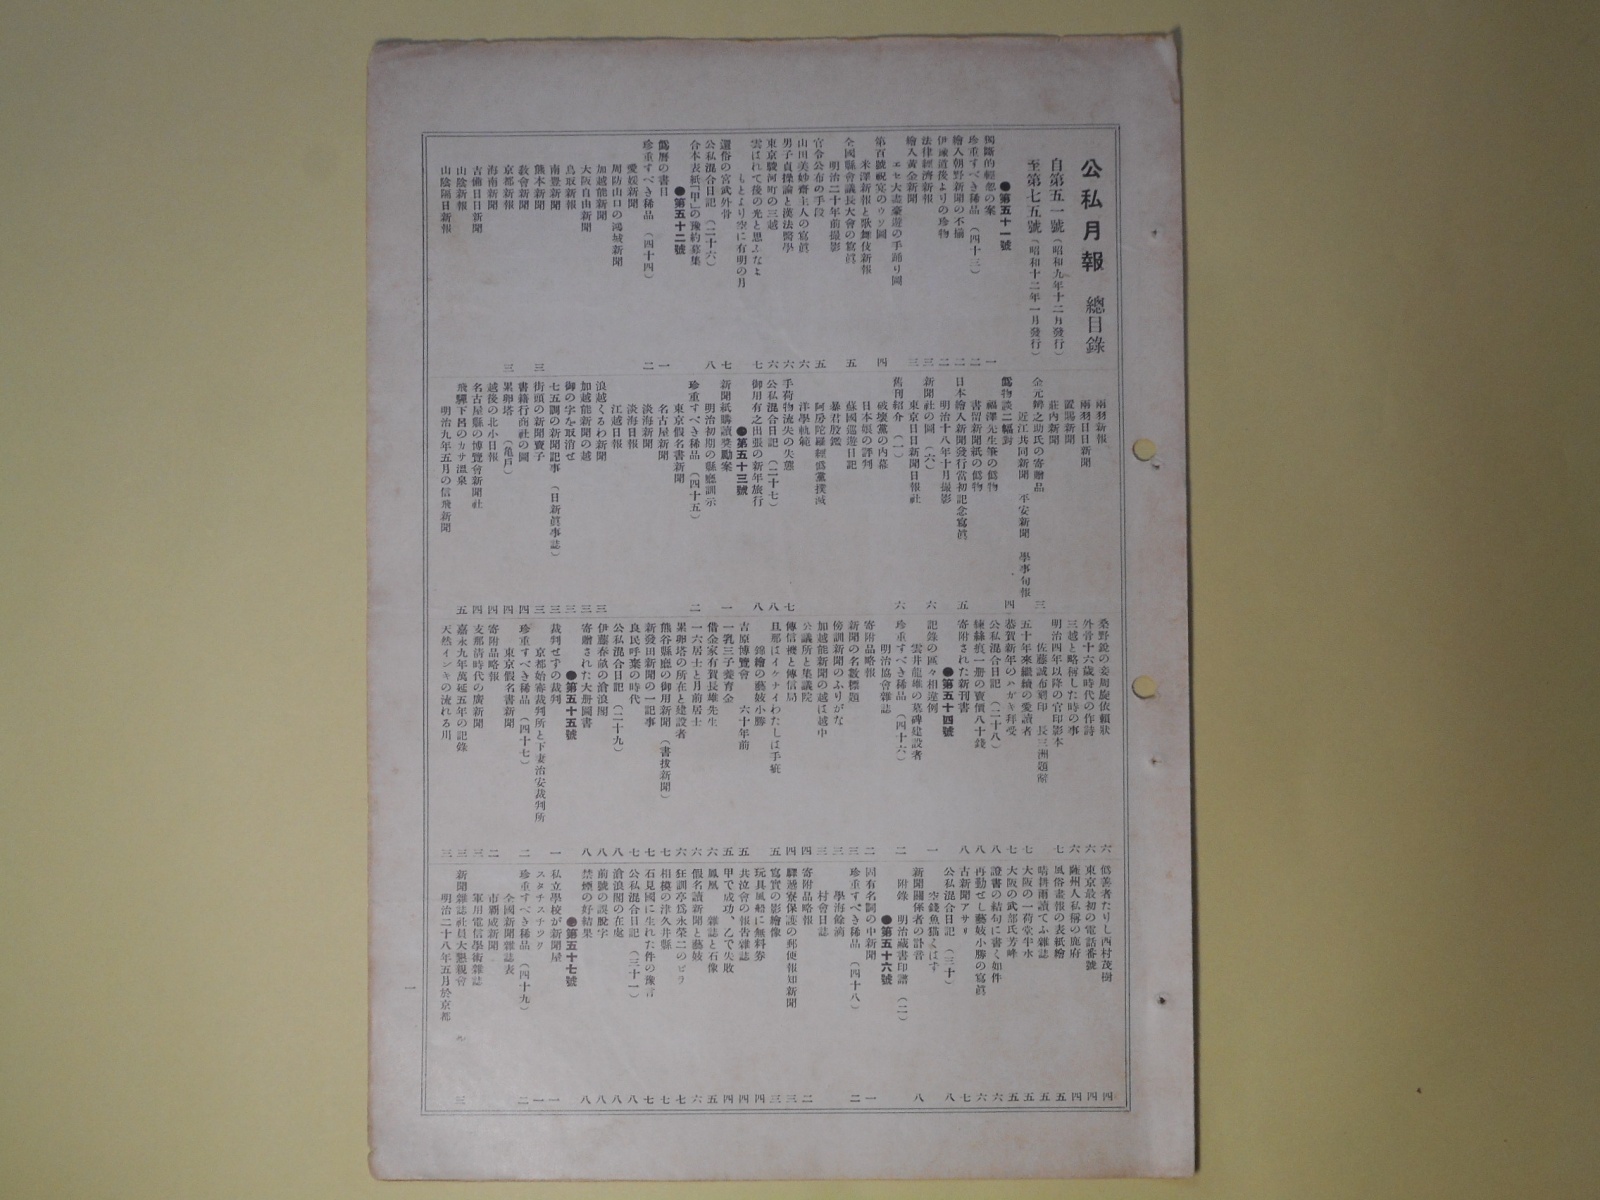 公私月報 總目錄
自第五一號(昭和九年十二月發行)
至第七五號(昭和十二年一月發行)
●第五十一號
獨斷的輕忽の案 一
珍重すべき稀品(四十三) 二
繪入朝野新聞の不揃 二
伊豫道後よりの珍物 二
法律經濟新報 三
繪入黃金新聞 三
エセ大盡豪遊の手踊り圖
第百號祝宴のウソ圖 四
米澤新報と歌舞伎新報
全國縣會議長大會の寫眞 五
明治二十年前撮影
官令公布の手段 五
山田美妙齋主人の寫眞 六
男子貞操論と漢法醫學 六
東京駿河町の三越 六
雲はれて後の光と思ふなよ 七
もとより空に有明の月
還俗の宮武外骨 七
公私混合日記(二十六) 八
合本表紙「甲」の豫約募集
●第五十二號
僞曆の書目 一
珍重すべき稀品(四十四) 二
愛媛新聞
周防山口の鴻城新聞
加越能新聞
大阪自由新聞
鳥取新報
南豊新報
熊本新聞 三
敎會新聞
京都新報 三
海南新聞
吉備日日新聞
山陰新報
山陰隔日新報
兩羽新報
兩羽日日新聞
置賜新聞
莊內新聞
金元錦之助氏の寄贈品 三
近江共同新聞 平安新聞 學事旬報
僞物談二幅對 四
福澤先生筆の僞物
書留新聞紙の僞物
日本繪入新聞發行當初記念寫眞 五
明治十八年十月撮影
新聞社の圖(六) 六
東京日日新聞日報社
舊刊紹介(一) 六
破壞黨の內幕
日本娘の評判
蘇國巡遊日記
暴君股鑑
阿房陀羅經僞黨撲滅
洋學軌範
手荷物流失の失態 七
公私混合日記(二十七) 八
御用有之出張の新年旅行 八
●第五十三號
新聞紙購讀獎勵案 一
明治初期の縣廳訓示
珍重すべき稀品(四十五) 二
東京假名書新聞
名古屋新聞
淡海新聞
淡海日報
江越日報
浪越くるわ新聞 三
加越能新聞の越 三
御の字を取消せ 三
七五調の新聞記事(日新眞事誌) 三
街頭の新聞賣子 三
書籍行商社の圖 四
累卵塔(亀戶) 四
越後の北小日報 四
名古屋縣の博覽會新聞社 四
飛驒下呂のカサ溫泉 五
明治九年五月の信飛新聞
桑野銳の妾周旋依賴狀 六
外骨十六歲時代の作詩 六
三越と略稱した時の事 六
明治四年以降の官印影本 七
佐藤誠布刷印 長三洲題辭
五十年來繼續の愛讀者 七
恭賀新年のハガキ拜受 七
公私混合日記(二十八) 八
練絲痕一册の賣價八十錢 八
寄附された新刊書 八
●第五十四號
記錄の區々相違例 一
雲井龍雄の墓碑建設者
珍重すべき稀品(四十六) 二
明治協會雜誌
寄附品略報 二
新聞の名數標題 三
傍訓新聞のふりがな 三
加越能新聞の越は越中 三
公議所と集議院 四
傳信機と傳信局 四
旦那はイケナイわたしは手疵 五
錦繪の藝妓小勝
吉原博覽會 六十年前 五
一乳三子養育金 五
借金家有賀長雄先生 六
一六居士と月前居士 六
累卵塔の所在と建設者 六
熊谷縣廳の御用新聞(書拔新聞) 七
新發田新聞の一記事 七
良民呼棄の時代 七
公私混合日記(二十九) 八
伊藤春畝の滄浪閣 八
寄贈された大册圖書 八
●第五十五號
裁判せずの裁判 一
京都始審裁判所と下妻治安裁判所
珍重すべき稀品(四十七) 二
東京假名書新聞
寄附品略報 二
支那清時代の廣新聞 三
嘉永九年萬延五年の記錄 三
天然インキの流れる川 三
僞善者たりし西村茂樹 四
東京最初の電話番號 四
薩州人私稱の鹿府 四
風俗畫報の表紙繪 五
晴耕雨讀てふ雜誌 五
大阪の一荷堂半水 五
大阪の武部氏芳峰 五
證書の結句に書く如件 六
再勤せし藝妓小勝の寫眞 六
古新聞アサリ 七
公私混合日記(三十) 八
空錢魚猫くはず
新聞關係者の訃音 八
附錄 明治藏書印譜(二)
●第五十六號
固有名詞の中新聞 一
珍重すべき稀品(四十八) 二
學海餘滴
村會日誌
寄附品略報 二
驛遞寮保護の郵便報知新聞 三
寫實の影繪像 三
玩具風船に無料券 四
共泣會の報告雜誌 四
甲で成功、乙で失敗 四
鳳凰 雜誌と石像 五
假名讀新聞と藝妓 六
狂訓亭爲永榮二のビラ 七
相模の津久井縣 七
石見國に生れた件の豫言 七
公私混合日記(三十一) 八
滄浪閣の在處 八
前號の誤脫字 八
禁煙の好結果 八
●第五十七號
私立學校が新聞屋 一
スタチスチツク 一
珍重すべき稀品(四十九) 二
全國新聞雜誌表
市報威新聞
軍用電信學術雜誌
新聞雜誌社員大懇親會 三
明治二十八年五月於京都
一